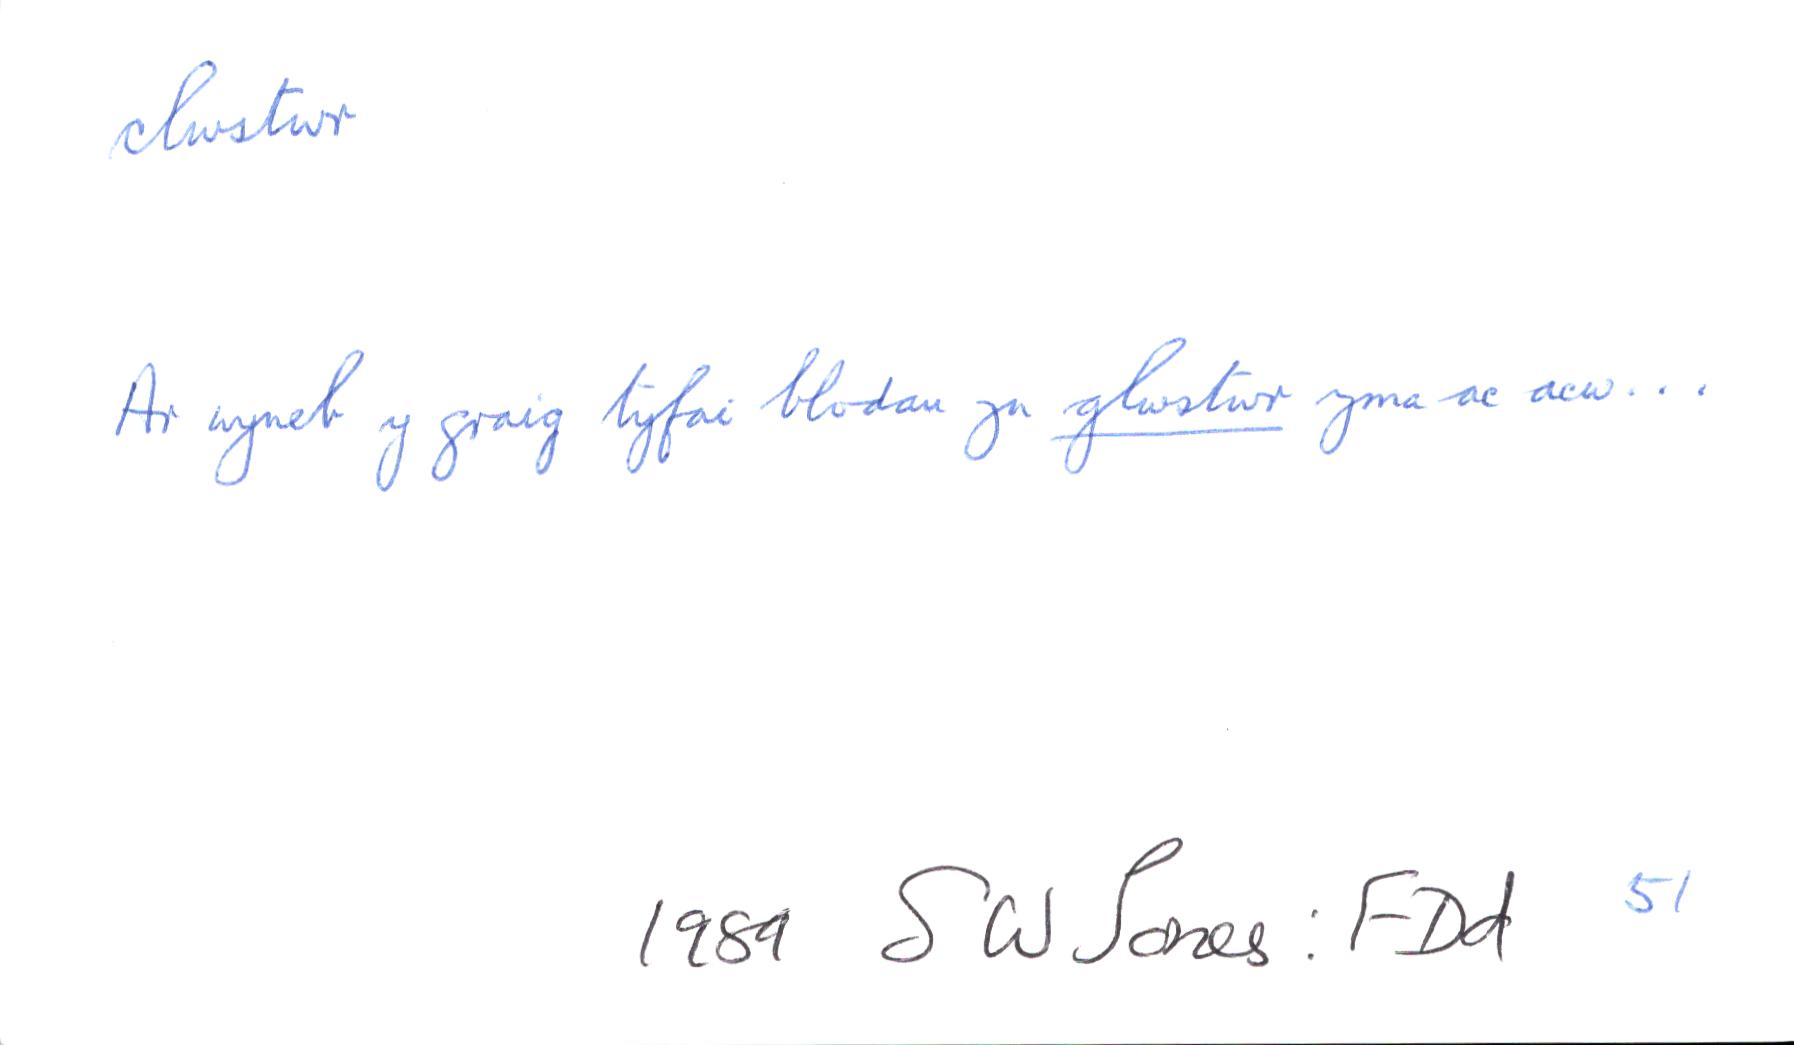 clwstwr
Ar wyneb y graig tyfai blodau yn glwstwr yma ac acw...
1989 SW Jones: FDd 51